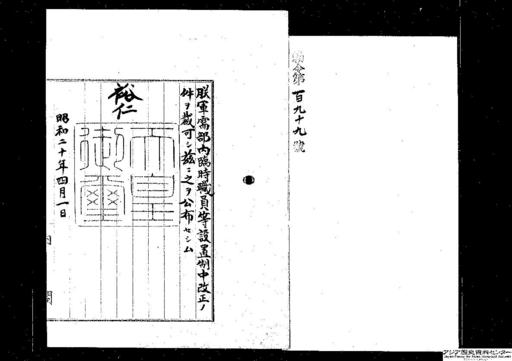 勅令第百九十九號
朕軍需部內臨時職員等設置制中改正ノ
件ヲ裁可シ茲ニ之ヲ公布セシム
裕仁
天皇御璽
昭和二十年四月一日
アジア歴史資料センター